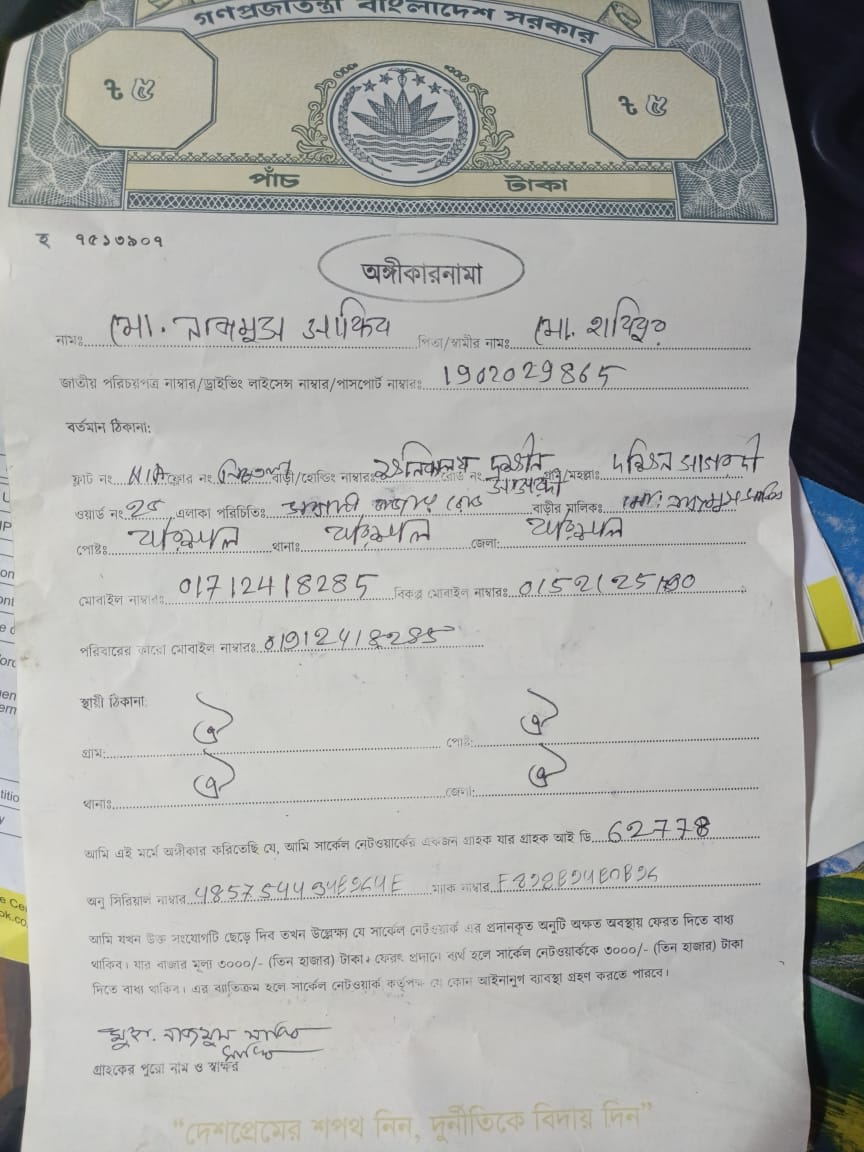 গণপ্রজাতন্ত্রী বাংলাদেশ সরকার
৳ ৫ ৳ ৫
পাঁচ টাকা
হ ৭৫১৩৯০৭
অঙ্গীকারনামা
নামঃ মো. নাজমুস সাকিব পিতা/স্বামীর নামঃ মো.
জাতীয় পরিচয়পত্র নাম্বার/ড্রাইভিং লাইসেন্স নাম্বার/পাসপোর্ট নাম্বারঃ 1902029865
বর্তমান ঠিকানা:
ফ্লাট নং N/A ফ্লোর নং বাড়ী/হোল্ডিং নাম্বারঃ রোড নং গলি/মহল্লাঃ
ওয়ার্ড নং 25 এলাকা পরিচিতিঃ রোড বাড়ীর মালিকঃ মোঃ নাজমুস সাকিব
পোষ্টঃ বরিশাল থানাঃ বরিশাল জেলা: বরিশাল
মোবাইল নাম্বারঃ 01712418285 বিকল্প মোবাইল নাম্বারঃ
পরিবারের কারো মোবাইল নাম্বারঃ 01912418285
স্থায়ী ঠিকানা:
গ্রাম: ঐ পোষ্ট: ঐ
থানাঃ ঐ জেলা: ঐ
আমি এই মর্মে অঙ্গীকার করিতেছি যে, আমি সার্কেল নেটওয়ার্কের একজন গ্রাহক যার গ্রাহক আই ডি 62778
অনু সিরিয়াল নাম্বার ম্যাক নাম্বার
আমি যখন উক্ত সংযোগটি ছেড়ে দিব তখন উল্লেক্ষ্য যে সার্কেল নেটওয়ার্ক এর প্রদানকৃত অনুটি অক্ষত অবস্থায় ফেরত দিতে বাধ্য
থাকিব। যার বাজার মূল্য ৩০০০/- (তিন হাজার) টাকা। ফেরৎ প্রদানে ব্যর্থ হলে সার্কেল নেটওয়ার্ককে ৩০০০/- (তিন হাজার) টাকা
দিতে বাধ্য থাকিব। এর ব্যতিক্রম হলে সার্কেল নেটওয়ার্ক কর্তৃপক্ষ যে কোন আইনানুগ ব্যাবস্থা গ্রহণ করতে পারবে।
মুহা. নাজমুস সাকিব
সাকিব
গ্রাহকের পুরো নাম ও স্বাক্ষর
“দেশপ্রেমের শপথ নিন, দুর্নীতিকে বিদায় দিন”